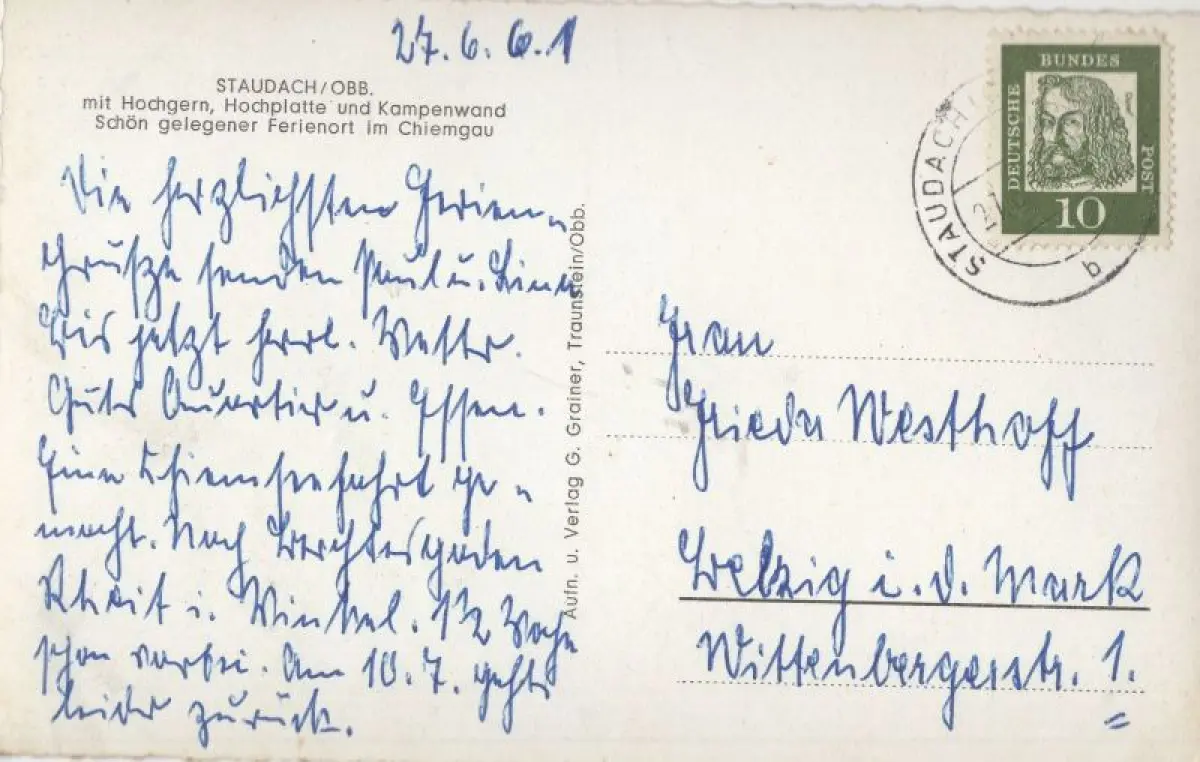 27.6.61
STAUDACH/OBB.
mit Hochgern, Hochplatte und Kampenwand
Schön gelegener Ferienort im Chiemgau
Die herzlichsten Ferien-
Grüße senden Paul u.
Bis jetzt herrl. Wetter.
Gutes Quartier u. Essen.
Eine Chiemseefahrt ge-
macht. Nach Berchtesgaden
Rheit i. Winkel. 1½ Woche
schon vorbei. Am 10.7. gehts
leider zurück.
Aufn. u. Verlag G. Grainer, Traunstein/Obb.
DEUTSCHE
BUNDES
POST
10
STAUDACH
b
Frau
Frieda Westhoff
Belzig i. d. Mark
Wittenbergerstr. 1.